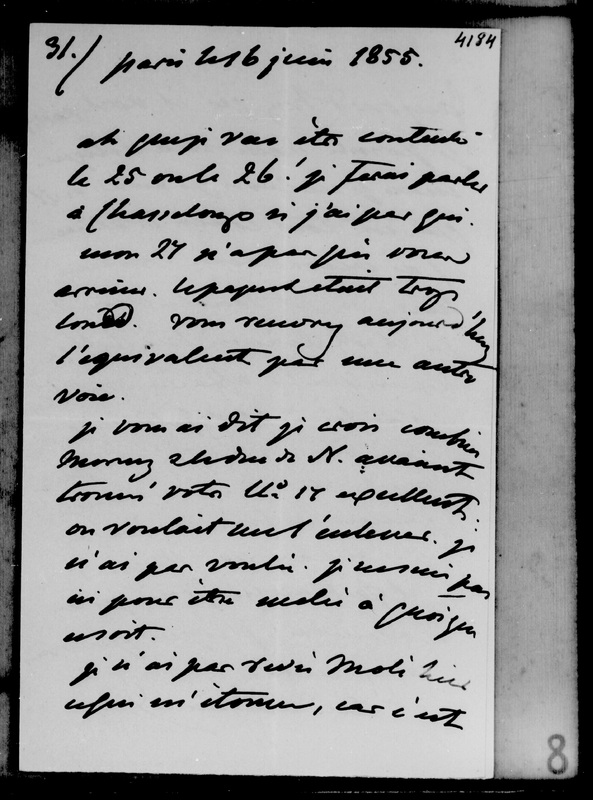 31./ 4184
paris le 16 juin 1855.
ah que je vais être contente
le 25 ou le 26! je ferai parler
à Chasseloup si j'ai par qui.
mon 27 n'a pas pu vous
arriver. le paquet était trop
lourd. vous recevrez aujourd'huy
l'équivalent par une autre
voie.
je vous ai dit je crois combien
Morny & le duc de N. avaient
trouvé votre No. 17 excellent.
on voulait me l'enlever. je
n'ai pas voulu. je ne suis pas
ici pour être mêlée à quoique
ce soit.
je n'ai pas revu Molé hier
ce qui m'étonne, car c'est
8